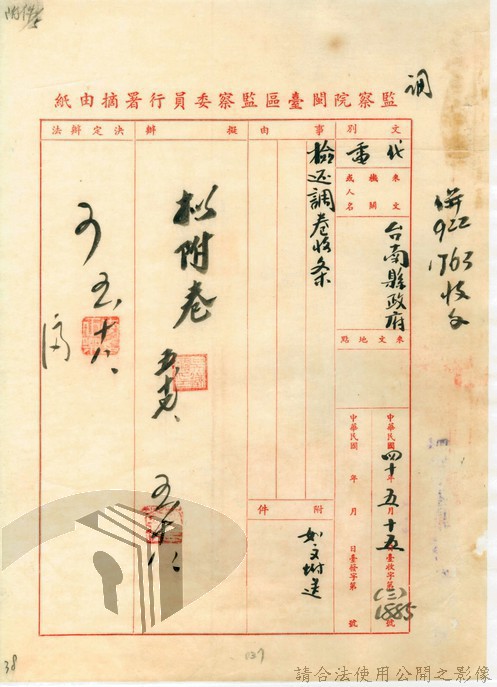 附件
調
監察院閩臺區監察委員行署摘由紙
文別
代電
來文機關或人名
台南縣政府
來文地點
中華民國四十年五月十五日臺收字第(二)1885號
中華民國 年 月 日臺發字第 號
事由
檢還調卷收条
附件
如文附送
擬辦
拟附卷
五
決定辦法
可
五
十八
併
922
1763收文
38
137
請合法使用公開之影像